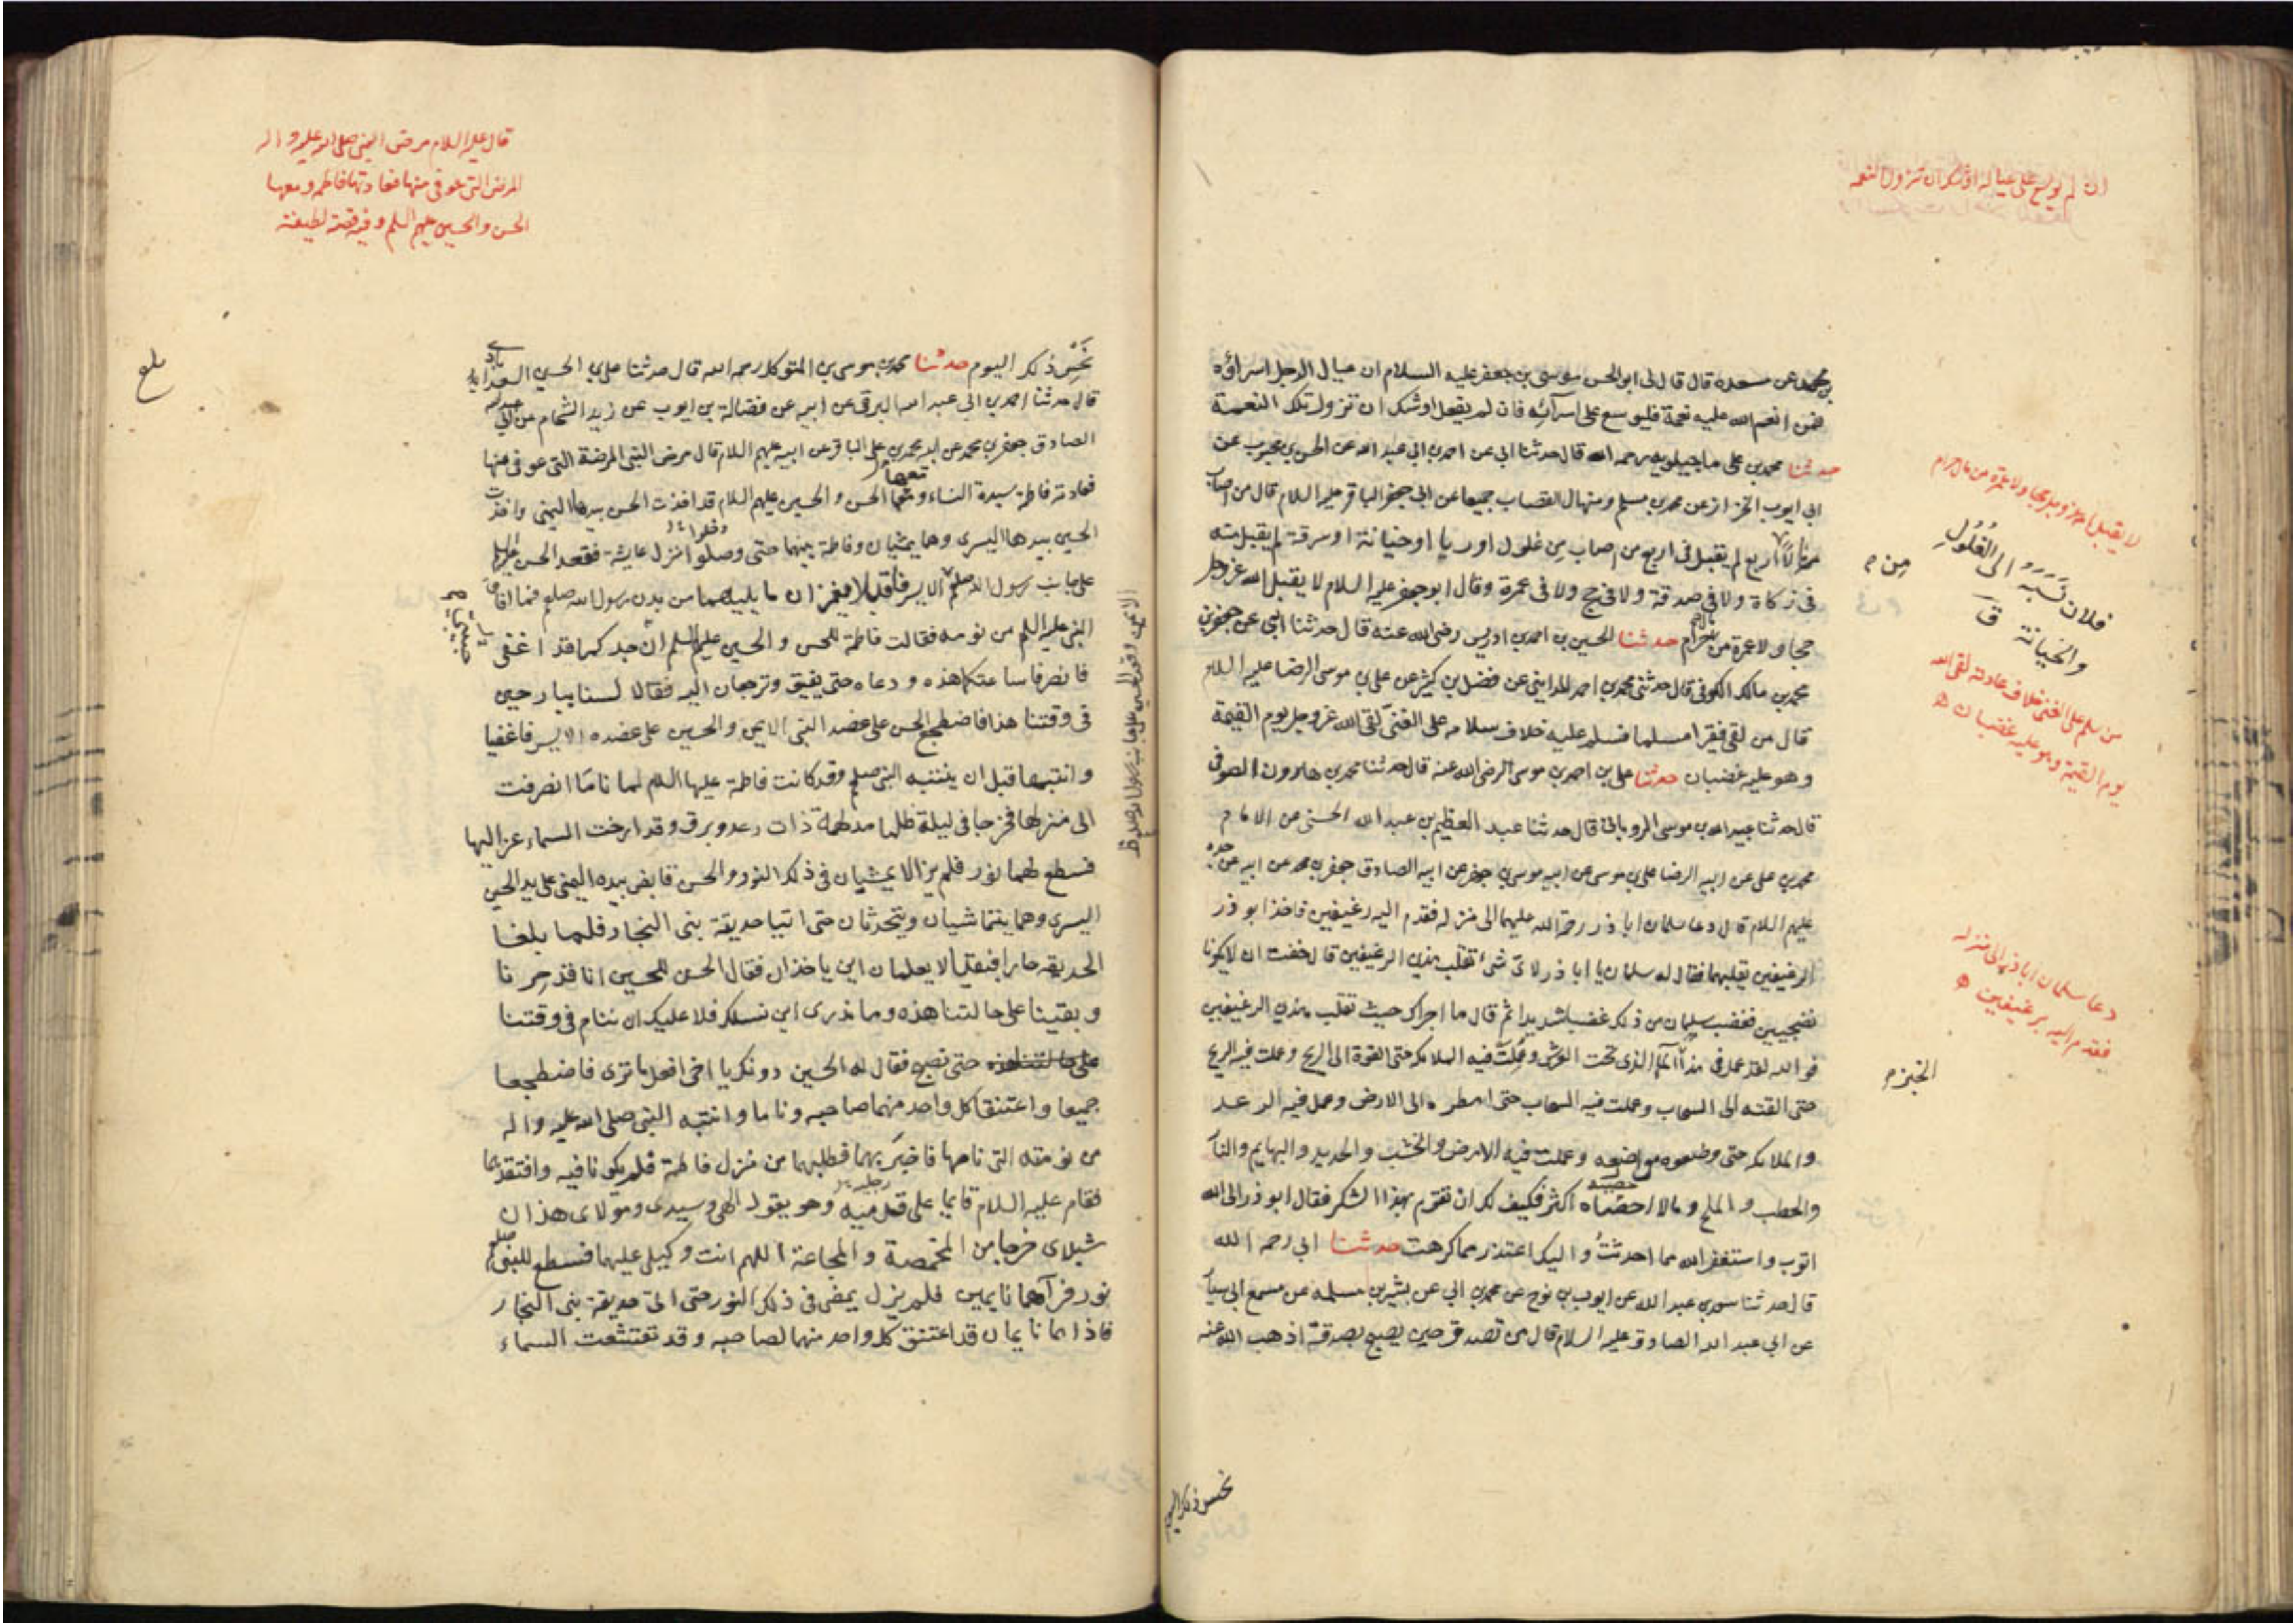 ان لم يوسع على عياله اوشك ان تزول النعمة
بن محمد عن مسعدة قال قال لى ابو الحسن موسى بن جعفر عليه السلام ان عيال الرجل اسراؤه
فمن انعم الله عليه نعمة فليوسع على اسرآئه فان لم يفعل اوشك ان تزول تلك النعمة
حدثنا محمد بن على ماجيلويه رحمه الله قال حدثنا ابى عن احمد بن ابى عبد الله عن الحسن بن محبوب عن
ابى ايوب الخزاز عن محمد بن مسلم ومنهال القصاب جميعا عن ابى جعفر الباقر عليه السلام قال من اصاب
مالا من اربع لم يقبل فى اربع من اصاب من غلول او ربا او خيانة او سرقة لم يقبل منه
فى زكاة ولا فى صدقة ولا فى حج ولا فى عمرة وقال ابو جعفر عليه السلام لا يقبل الله عز وجل
حجا ولا عمرة من مال حرام حدثنا الحسين بن احمد بن ادريس رضى الله عنه قال حدثنا ابى عن جعفر بن
محمد بن مالك الكوفى قال حدثنى محمد بن احمد المداينى عن فضل بن كثير عن على بن موسى الرضا عليه السلام
قال من لقى فقيرا مسلما فسلم عليه خلاف سلامه على الغنى لقى الله عز وجل يوم القيمة
وهو عليه غضبان حدثنا على بن احمد بن موسى رضى الله عنه قال حدثنا محمد بن هارون الصوفى
قال حدثنا عبيد الله بن موسى الرويانى قال حدثنا عبد العظيم بن عبد الله الحسنى عن الامام
محمد بن على عن ابيه الرضا على بن موسى عن ابيه موسى بن جعفر عن ابيه الصادق جعفر بن محمد عن ابيه عن جده
عليهم السلام قال دعا سلمان ابا ذر رحمة الله عليهما الى منزله فقدم اليه رغيفين فاخذ ابو ذر
الرغيفين يقلبهما فقال له سلمان يا ابا ذر لاى شىء تقلب هذين الرغيفين قال خفت ان لا يكونا
نضيجين فغضب سلمان من ذلك غضبا شديدا ثم قال ما اجراك حيث تقلب هذين الرغيفين
فو الله لقد عمل فى هذا الماء الذى تحت العرش وعملت فيه الملائكة حتى القوه الى الريح وعملت فيه الريح
حتى القته الى السحاب وعملت فيه السحاب حتى امطره الى الارض وعمل فيه الرعد
والملائكة حتى وضعوه مواضعه وعملت فيه الارض والخشب والحديد والبهايم والنار
والحطب والملح وما لا احصياه اكثر فكيف لك ان تقوم بهذا الشكر فقال ابو ذر الى الله
اتوب واستغفر الله مما احدثت واليك اعتذر مما كرهت حدثنا ابى رحمه الله
قال حدثنا سعد بن عبد الله عن ايوب بن نوح عن محمد بن ابى عن بشير بن مسلمه عن مسمع ابى سيار
عن ابى عبد الله الصادق عليه السلام قال من تصدق حين يصبح بصدقة اذهب الله عنه
نحس ذلك اليوم
من م
فلان نسبه الى الغلول
والخيانة ق
من سلم على الغنى خلاف عادته لقى الله
يوم القيمة وهو عليه غضبان
دعا سلمان ابا ذر الى منزله
فقدم اليه برغيفين
الخبز م
قال عليه السلام مرض النبى صلى الله عليه واله
المرض التى عوفى منها فعادتها فاطمه ومعها
الحسن والحسين عليهم السلم وفيه قصة لطيفة
بلغ
نحس ذلك اليوم حدثنا محمد بن موسى بن المتوكل رحمه الله قال حدثنا على بن الحسين السعدابادى
قال حدثنا احمد بن ابى عبد الله البرقى عن ابيه عن فضالة بن ايوب عن زيد الشحام عن ابى عبد الله
الصادق جعفر بن محمد عن ابيه محمد بن على الباقر عن ابيه عليهم السلام قال مرض النبى المرضة التى عوفى منها
فعادته فاطمة سيدة النساء ومعها الحسن والحسين عليهم السلام قد اخذت الحسن بيدها اليمنى واخذت
الحسين بيدها اليسرى وهما يمشيان وفاطمة بينهما حتى دخلوا منزل عايشة فقعد الحسن عليه السلم
على جانب رسول الله صلعم الايسر فاقبلا يغمزان ما يليهما من بدن رسول الله صلعم فما افاق
النبى عليه السلم من نومه فقالت فاطمة للحسن والحسين عليهم السلم ان جدكما قد اغفى
فانصرفا ساعتكما هذه ودعاه حتى يفيق وترجعان اليه فقالا لسنا ببارحين
فى وقتنا هذا فاضطجع الحسن على عضد النبى الايمن والحسين على عضده الايسر فاغفيا
وانتبها قبل ان ينتبه النبى صلعم وقد كانت فاطمة عليها السلام لما ناما انصرفت
الى منزلها فخرجا فى ليلة ظلماء مدلهمة ذات رعد وبرق وقد ارخت السماء عزاليها
فسطع لهما نور فلم يزالا يمشيان فى ذلك النور والحسن قابض بيده اليمنى على يد الحسين
اليسرى وهما يتماشيان ويتحدثان حتى اتيا حديقة بنى النجار فلما بلغا
الحديقه حارا فبقيا لا يعلمان اين ياخذان فقال الحسن للحسين انا قد حرنا
وبقينا على حالتنا هذه وما ندرى اين نسلك فلا عليك ان ننام فى وقتنا
حتى نصبح فقال له الحسين دونك يا اخى افعل ما ترى فاضطجعا
جميعا واعتنق كل واحد منهما صاحبه وناما وانتبه النبى صلى الله عليه واله
من نومته التى نامها فاخبر بهما فطلبهما من منزل فاطمة فلم يكونا فيه وافتقدهما
فقام عليه السلام قايما على رجليه وهو يقول الهى وسيدى ومولاى هذان
شبلاى خرجا من المخمصة والمجاعة اللهم انت وكيلى عليهما فسطع للنبى صلعم
نور فلم يزل يمضى فى ذلك النور حتى اتى حديقة بنى النجار
فاذا هما نايمان قد اعتنق كل واحد منهما لصاحبه وقد تقشعت السماء